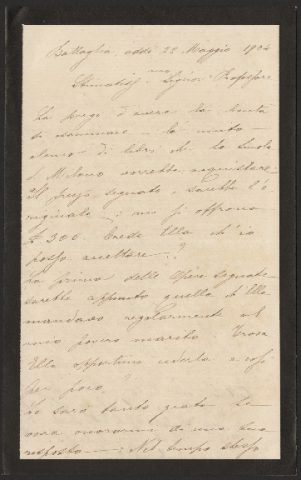 Battaglia addì 22 Maggio 1904
Stimatiss.mo Signor Professore
La prego d'avere la bontà
di esaminare - l'è unito -
elenco di libri che la
di Milano vorrebbe acquistare:
Il prezzo segnato, sarebbe l'o
riginale -; mi si offrono
£ 300. Crede Ella ch'io
possa accettare - ?
La prima delle opere segnate
sarebbe appunto quella ch'Ella
mandava regolarmente al
mio povero marito. Trova
Ella opportuno cederla a così
ben poco.
Le sarò tanto grata se
vorrà onorarmi di una sua
risposta - : Nel tempo stesso